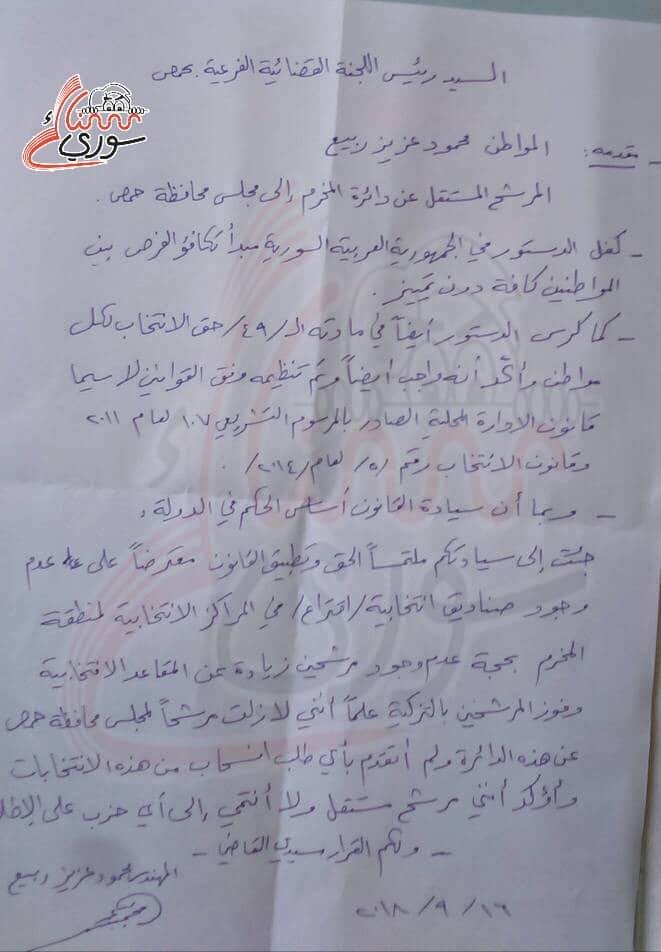 السيد رئيس اللجنة القضائية الفرعية بحمص
شتاء
سوري
- مقدمه: المواطن محمود عزيز ربيع
المرشح المستقل عن دائرة المخرم إلى مجلس محافظة حمص.
- كفل الدستور في الجمهورية العربية السورية مبدأ تكافؤ الفرص بين
المواطنين كافة دون تمييز.
- كما كرس الدستور أيضاً في مادته الـ/٤٩/ حق الانتخاب لكل
مواطن وأكّد أنه واجب أيضاً وتم تنظيمه وفق القوانين لاسيما
قانون الادارة المحلية الصادر بالمرسوم التشريعي ١٠٧ لعام ٢٠١١
وقانون الانتخاب رقم /٥/ لعام /٢٠١٤/ .
- وبما أن سيادة القانون أساس الحكم في الدولة،
جئت إلى سيادتكم ملتمساً الحق وتطبيق القانون معترضاً على عدم
وجود صناديق انتخابية /اقتراع/ في المراكز الانتخابية لمنطقة
المخرم بحجة عدم وجود مرشحين زيادة عن المقاعد الانتخابية
وفوز المرشحين بالتزكية علماً أنني لازلت مرشحاً لمجلس محافظة حمص
عن هذه الدائرة ولم أتقدم بأي طلب انسحاب من هذه الانتخابات
وأؤكد أنني مرشح مستقل ولا أنتمي إلى أي حزب على الإطلا
- ولكم القرار سيدي القاضي -
المهندس محمود عزيز ربيع
٢٠١٨ / ٩ / ١٦